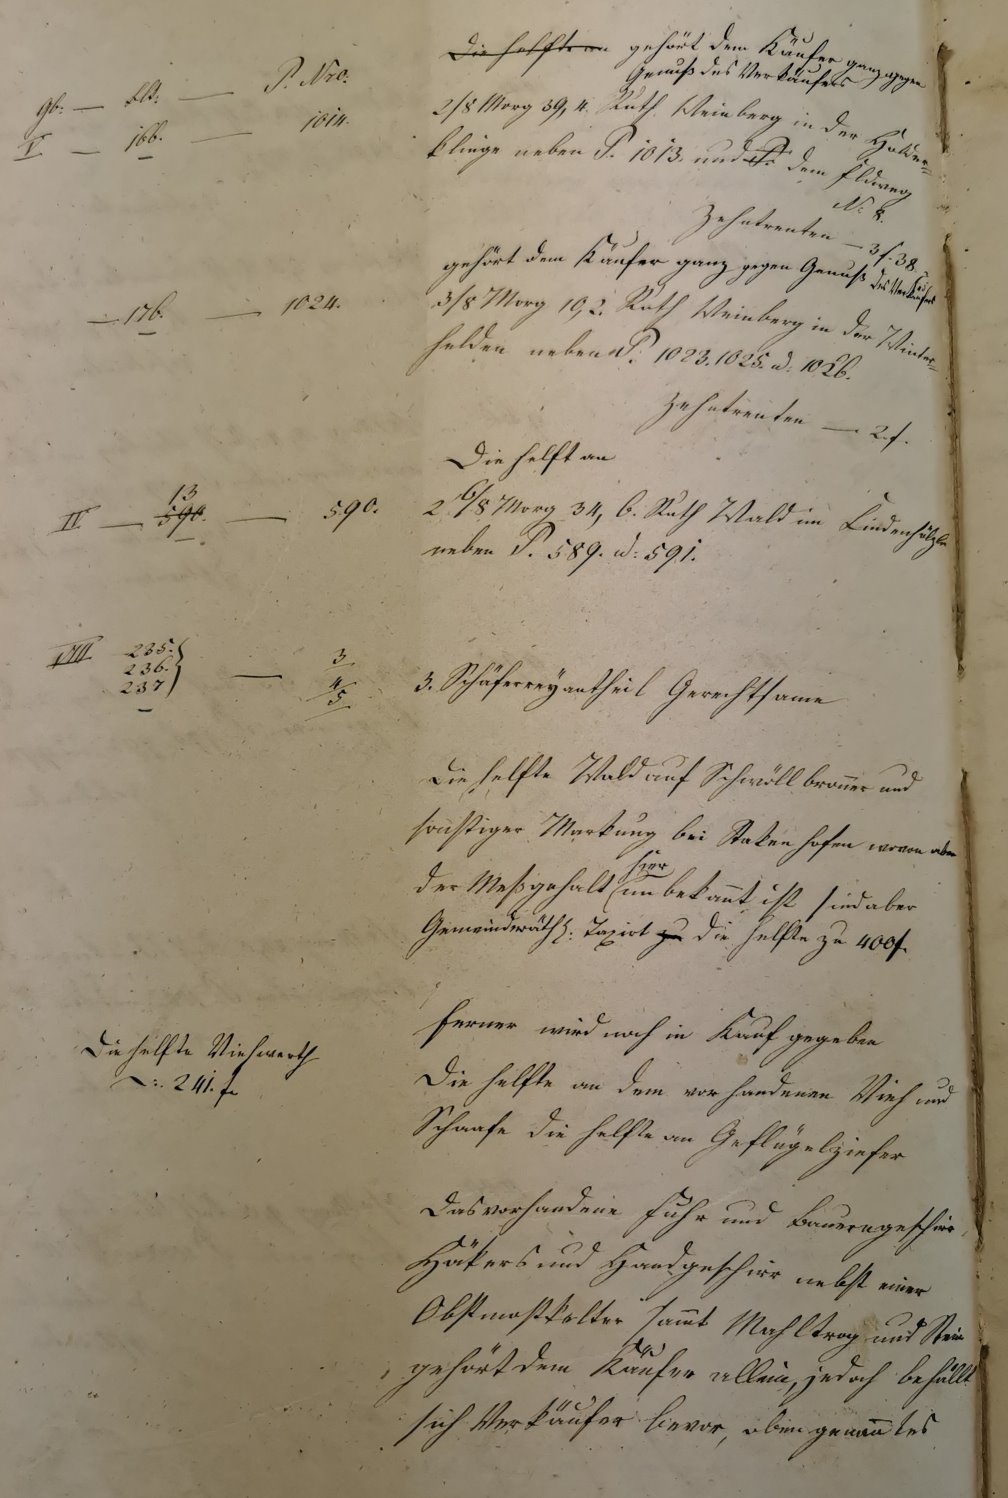 Die helfte an gehört dem Käufer ganz gegen
Genuß des Verkäufers
gb: — bll: — P. Nro:
I — 166. — 1014.
2/8 Morg 39,4. Ruth. Weinberg in der Holder-
klinge neben P. 1013. und P. dem Fldweg
N: 8.
Zehntrenten — 3 f. 38
gehört dem Käufer ganz gegen Genuß des Verkäufers
— 176. — 1024.
3/8 Morg 19,2. Ruth Weinberg in der Winter-
halden neben P. 1023. 1025. u: 1026.
Zehntrenten — 2 f.
Die helft an
13
II — 590. — 590.
2 6/8 Morg 34,6. Ruth Wald im Lindenhölzle
neben P. 589. u: 591.
VIII 235.
236.
237
— 3
4
5
3. Schäfereyantheil Gerechtsame
Die helfte Wald auf Schwöllbronner und
sonstiger Markung bei Staken hofen wovon aber
der Meßgehalt hier unbekannt ist sind aber
Gemeinderäthl: Taxirt zu die helfte zu 400 f.
ferner wird noch in Kauf gegeben
Die helfte Viehwerth
241. f.
Die helfte an dem vorhandenen Vieh und
Schaafe die helfte an Geflügelziefer
Das vorhandene Fuhr und Bauerngeschirr,
Häkers und Handgeschirr nebst einer
Obstmostkelter sammt Mahltrog und Stein
gehört dem Käufer allein, jedoch behällt
sich Verkäufer bevor, oben genanntes